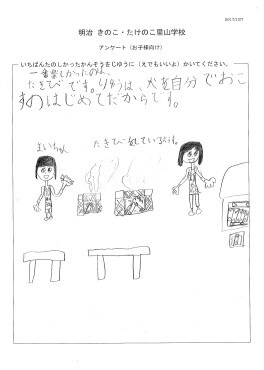 2017/10/7
明治 きのこ・たけのこ里山学校
アンケート（お子様向け）
いちばんたのしかったかんそうをじゆうに（えでもいいよ）かいてください。
一番楽しかったのは、
たきびです。りゆうは、火を自分でおこ
すのはじめてだからです。
まいちゃん
たきび見ているよう。